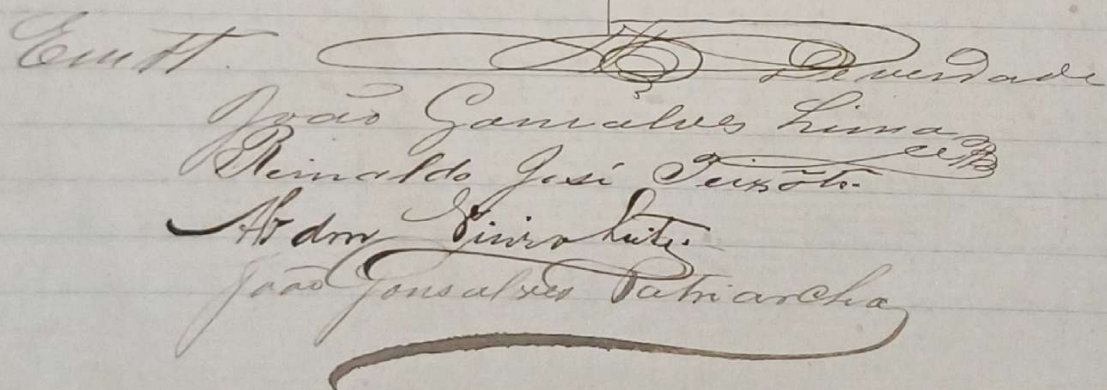 Em tt. de verdade
João Gonsalves Lima
Reinaldo José Peixôto
Abdon Vieira Leite
João Gonsalves Patriarcha